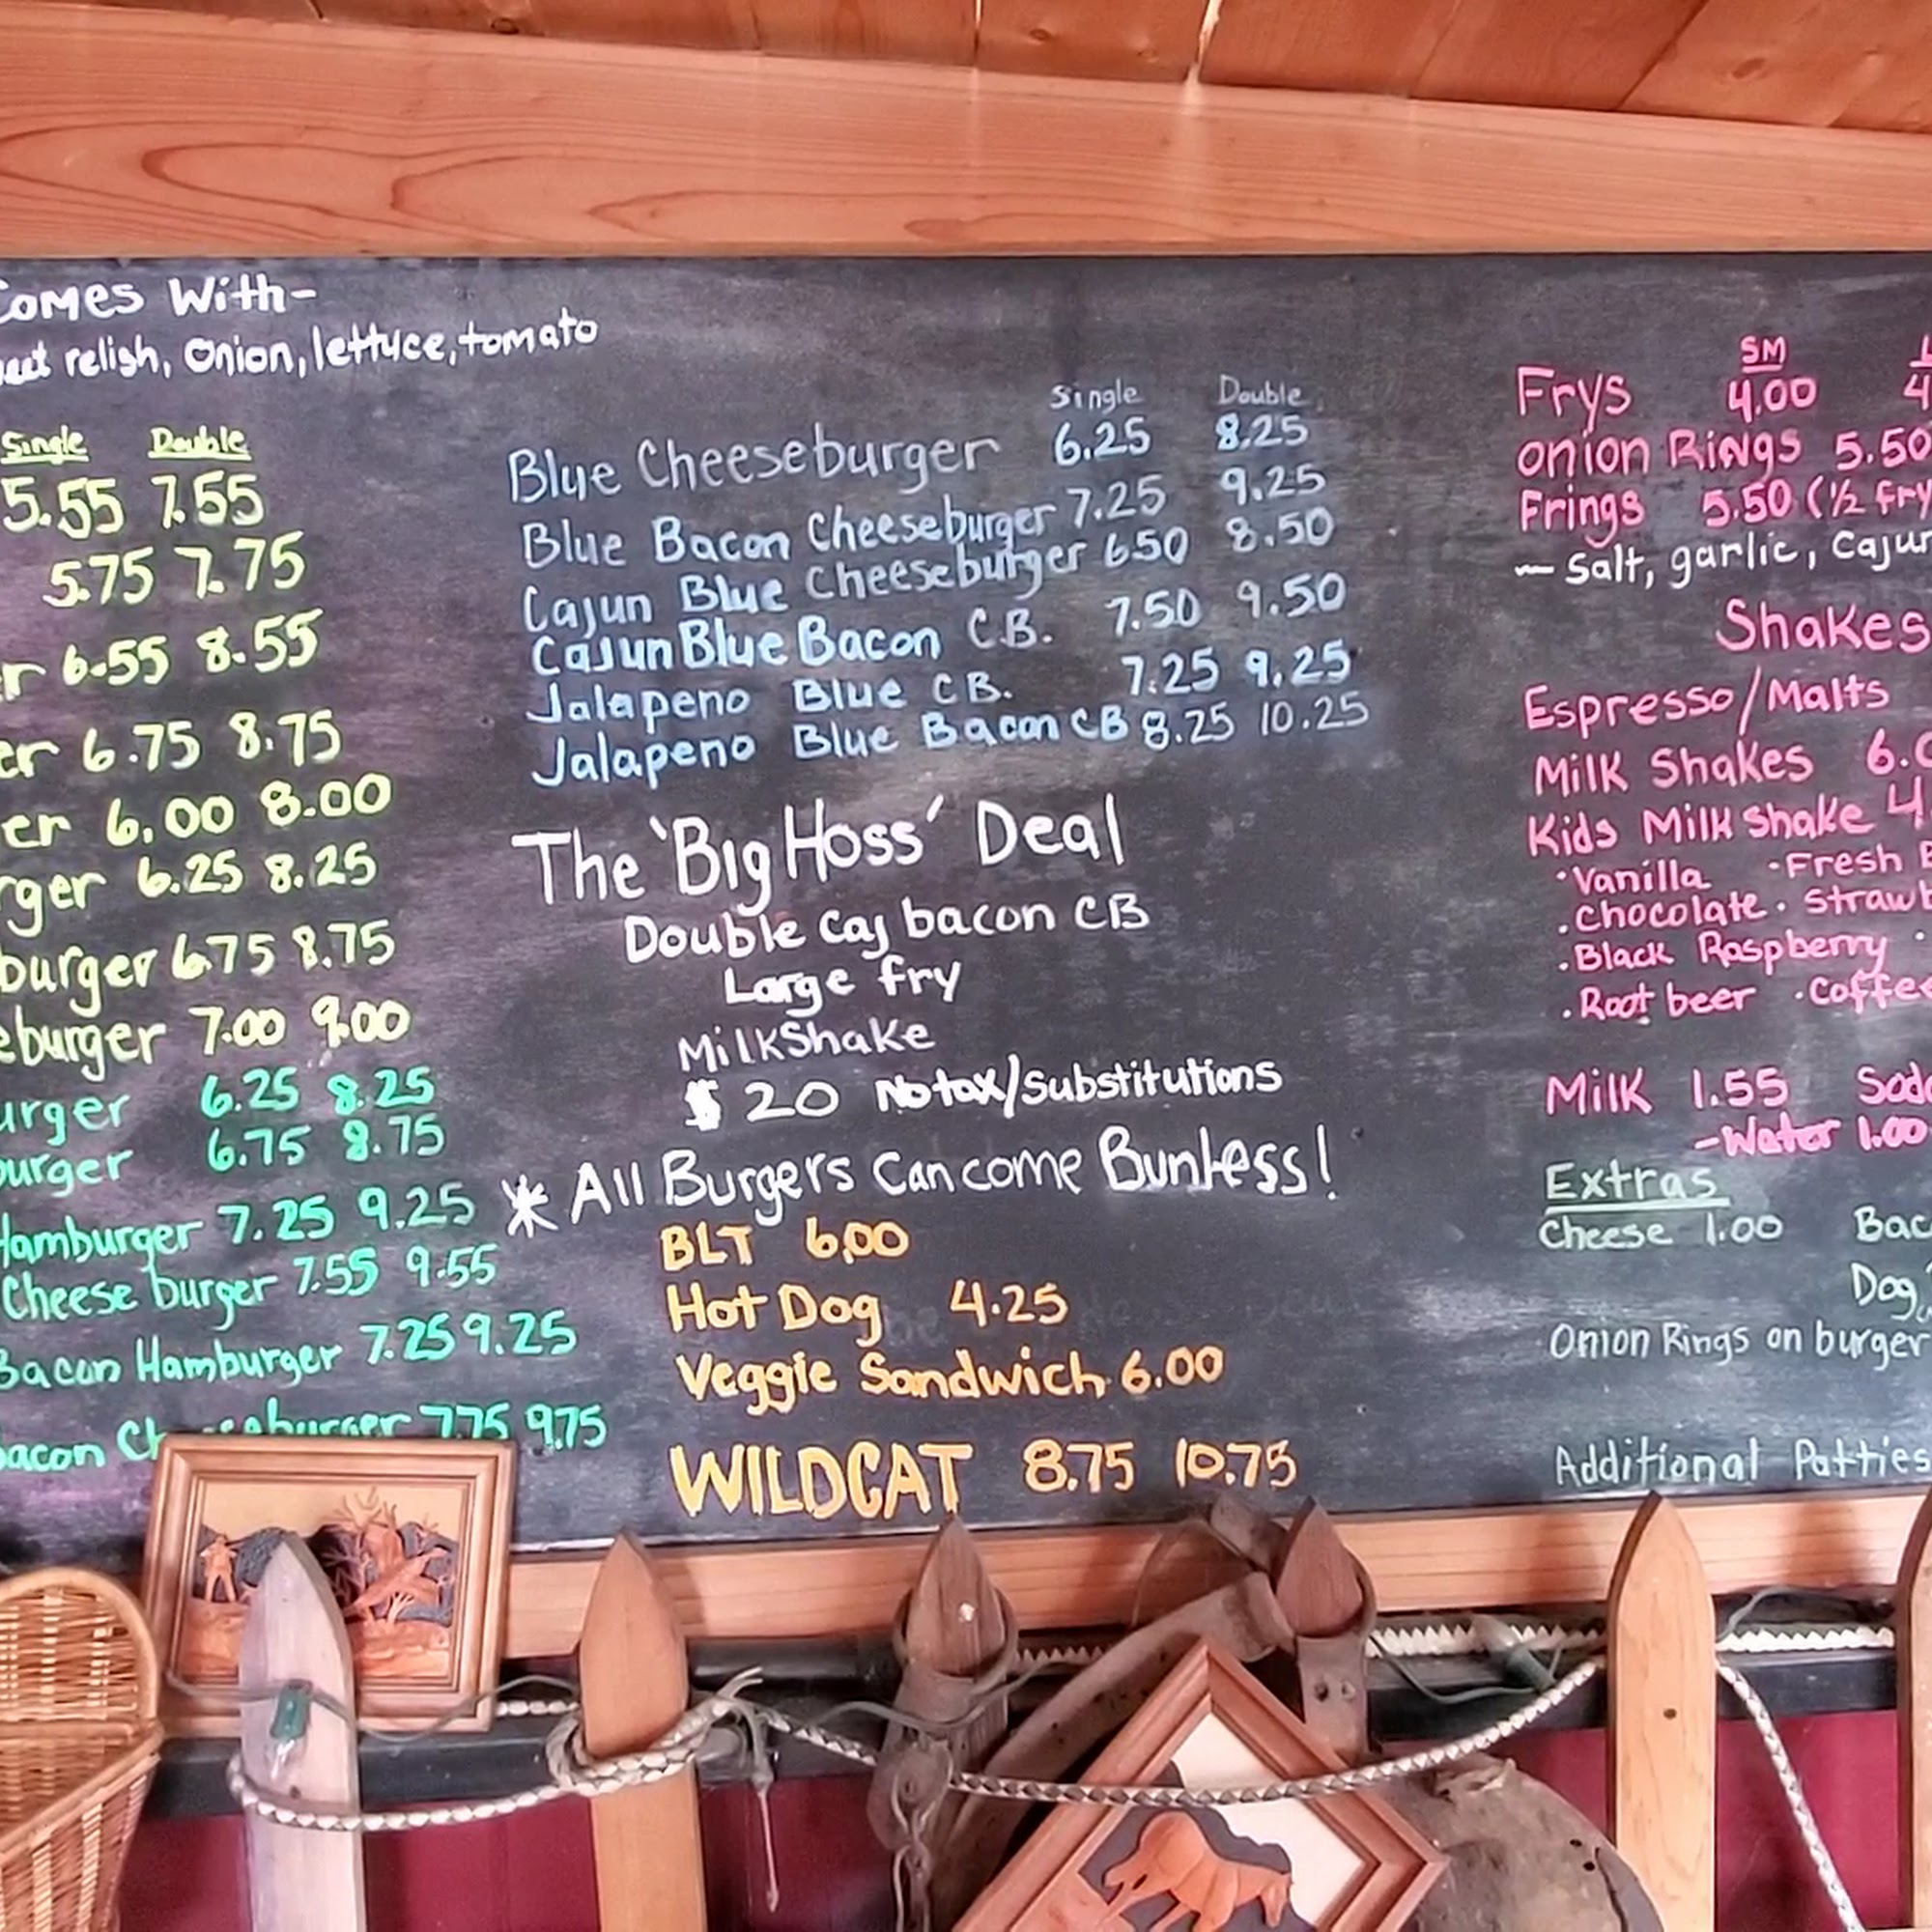 Comes With-
relish, Onion, lettuce, tomato
Single Double
5.55 7.55
5.75 7.75
er 6.55 8.55
er 6.75 8.75
er 6.00 8.00
rger 6.25 8.25
burger 6.75 8.75
eburger 7.00 9.00
urger 6.25 8.25
burger 6.75 8.75
Hamburger 7.25 9.25
Cheese burger 7.55 9.55
Bacon Hamburger 7.25 9.25
Bacon 7.75 9.75
Single Double
Blue Cheeseburger 6.25 8.25
Blue Bacon Cheeseburger 7.25 9.25
Cajun Blue Cheeseburger 6.50 8.50
Cajun Blue Bacon C.B. 7.50 9.50
Jalapeno Blue CB. 7.25 9.25
Jalapeno Blue Bacon CB 8.25 10.25
The 'Big Hoss' Deal
Double Caj bacon CB
Large fry
MilkShake
$20 No tax/substitutions
* All Burgers Can come Bunless!
BLT 6.00
Hot Dog 4.25
Veggie Sandwich 6.00
WILDCAT 8.75 10.75
SM
Frys 4.00 4
Onion Rings 5.50
Frings 5.50 (1/2 fry
- Salt, garlic, Cajun
Shakes
Espresso/Malts
Milk Shakes 6.0
Kids Milk Shake 4
·Vanilla ·Fresh
·Chocolate ·Strawb
·Black Raspberry ·
·Root beer ·Coffee
Milk 1.55 Soda
-Water 1.00
Extras
Cheese 1.00 Bac
Dog
Onion Rings on burger
Additional Patties